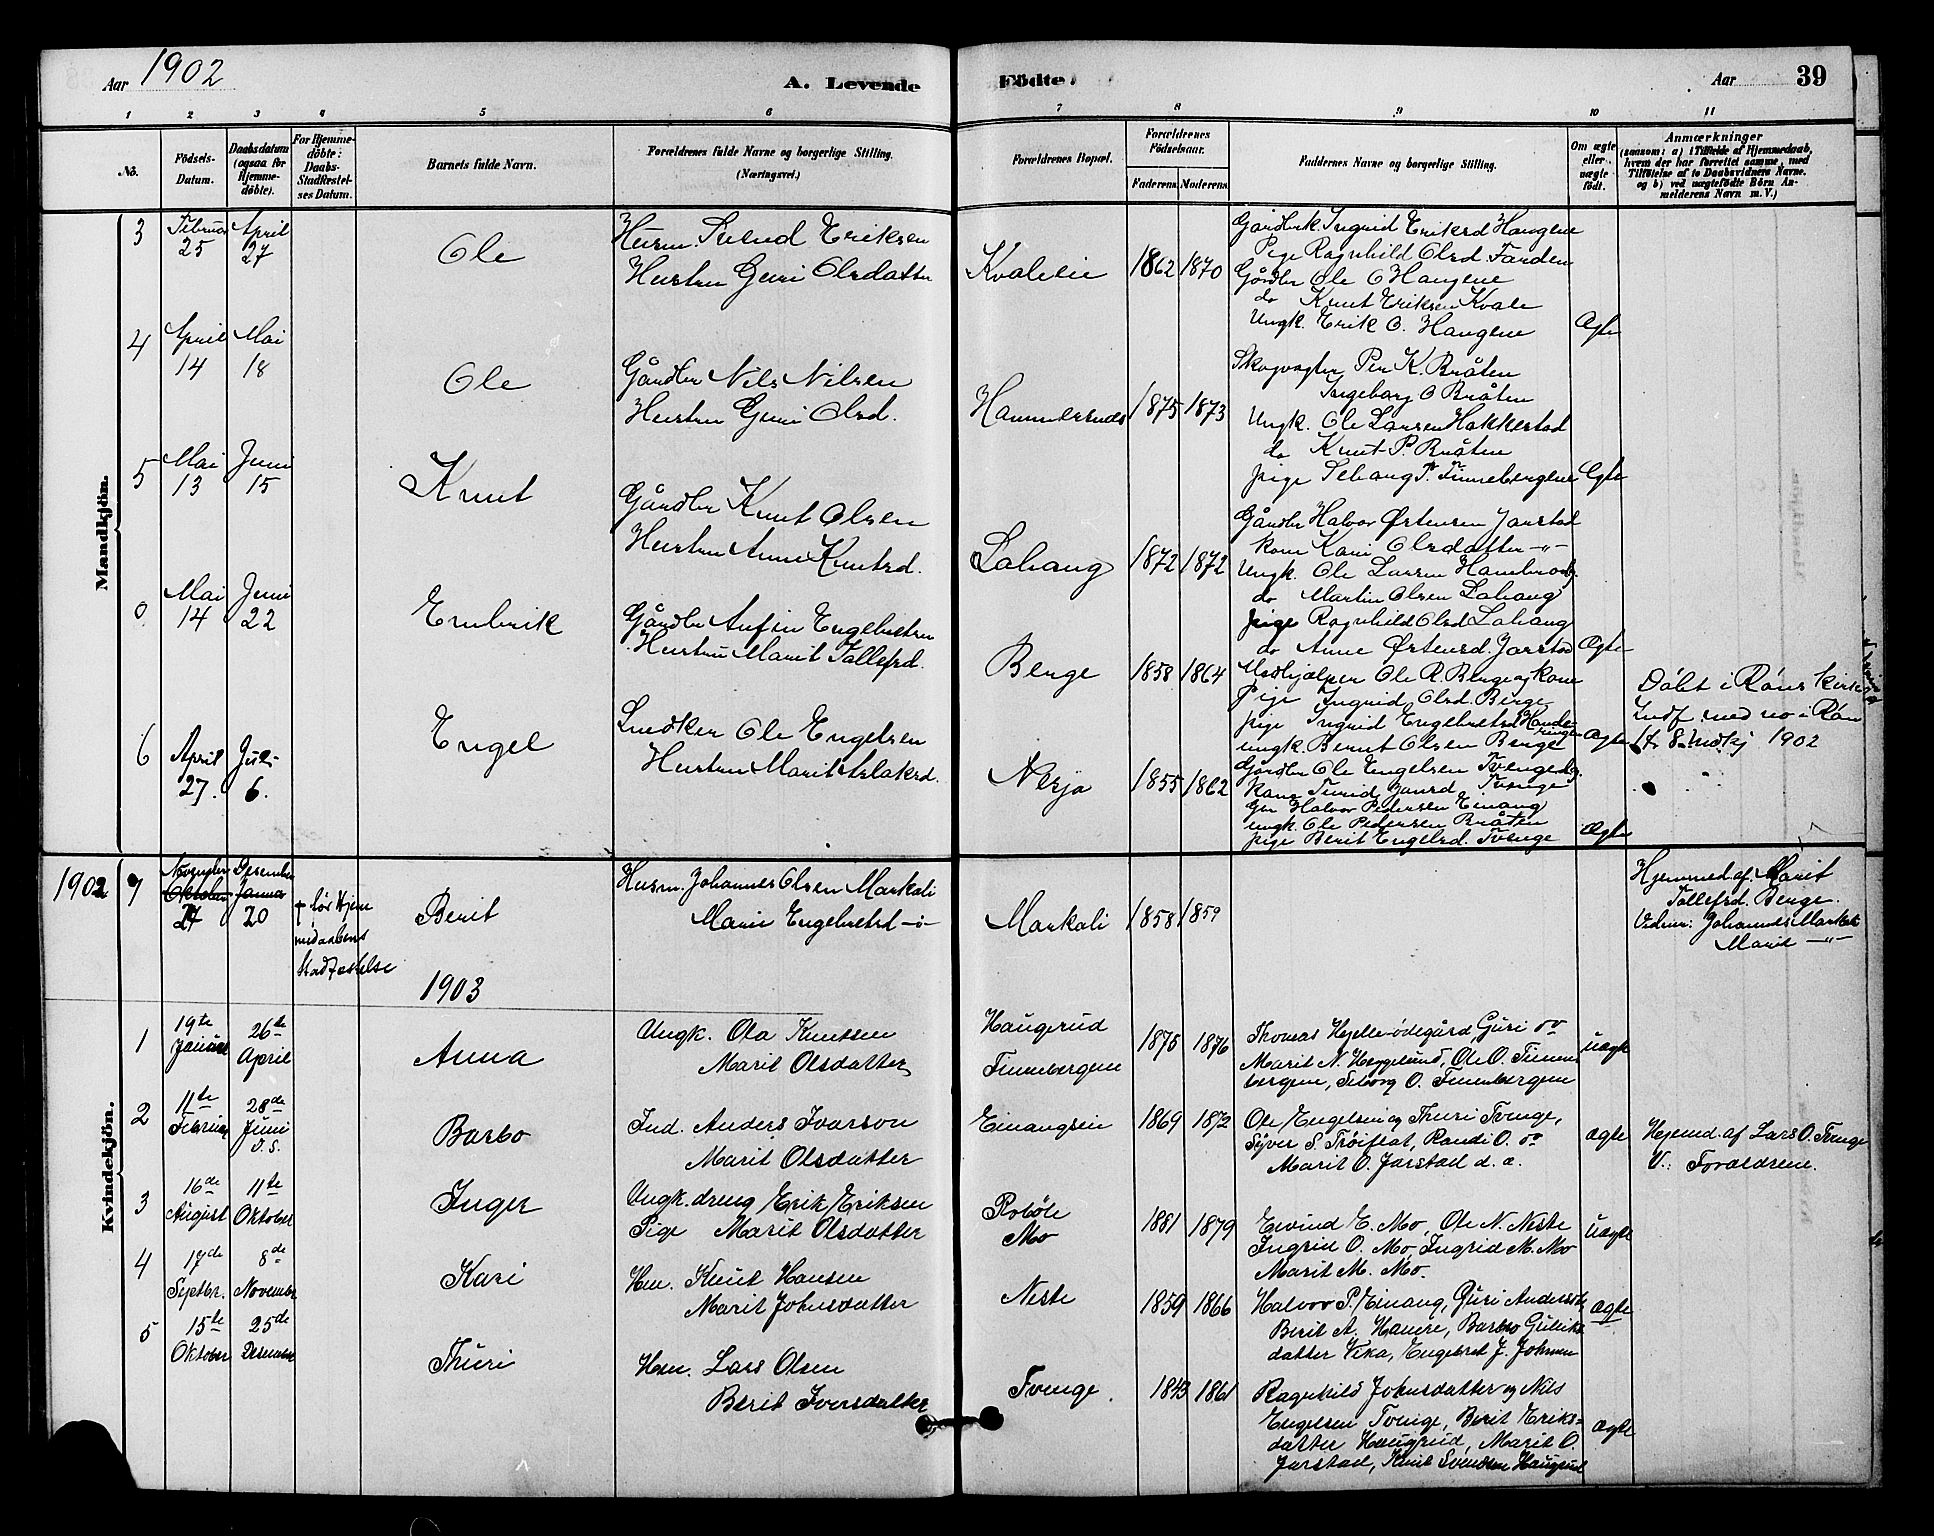 Aar 1902
A. Levende
Födte.
Aar
39
1 2 3 4 5 6 7 8 9 10 11
No.
Födsels-Datum.
Daabsdatum (ogsaa for Hjemme-döbte).
For Hjemme-döbte: Daabs-Stadfæstel-ses Datum.
Barnets fulde Navn.
Forældrenes fulde Navne og borgerlige Stilling.
(Næringsvei.)
Forældrenes Bopæl.
Forældrenes Födselsaar.
Faderens. Moderens.
Faddernes Navne og borgerlige Stilling.
Om ægte eller uægte födt.
Anmærkninger
(saasom: a) i Tilfælde af Hjemmedaab,
hvem der har forrettet samme, med
Tilföielse af to Daabsvidners Navne.
og b) ved uægtefödte Börn An-
melderens Navn m. V.)
Mandkjön.
3 Februar 25 April 27
Ole
Husm. Svend Eriksen
Hustru Guri Olsdatter
Kvaleeie 1862 1870
Gårdbrk. Ingrid Eriksd Haugene
Pige Ragnhild Olsd. Farden
Gårdbr Ole O Haugene
do Knut Eriksen Kvale
Ungk. Erik O. Haugene
Ægte
4 April 14 Mai 18
Ole
Gårdbr Nils Nilsen
Hustru Guri Olsd.
1875 1873
Skogvogter Per K. Bråten
Ingeborg O Bråten
Ungk. Ole Larsen Hakkestad
do Knut P. Bråten
pige Sebaug P. Finnebergene
Ægte
5 Mai 13 Juni 15
Knut
Gårdbr Knut Olsen
Hustru Anne Knutsd.
Lahaug 1872 1872
Gårdbr Halvor Østensen Jarstad
kone Kari Olsdatter -"-
Ungk. Ole Larsen
do Martin Olsen Lahaug
pige Ragnhild Olsd Lahaug
do Anne Østensd. Jarstad
Ægte
0 Mai 14 Juni 22
Embrik
Gårdbr Anfin Engebretsen
Hustru Marit Tollefsd.
Berge 1858 1864
Medhjælper Ole R. Berge og kone
Pige Ingrid Olsd. Berge
pige Ingrid Engebretsd
ungk. Bernt Olsen Berge
Ægte
Døbt i Røns kirke
Indf. med no i Røn
1902
6 April 27. Juli 6.
Engel
Snedker Ole Engelsen
Hustru Marit Aslaksd.
Nerjo 1855 1862
Gårdbr Ole Engelsen Tvenge og
kone Turid Tvenge
Gbr Halvor Pedersen Einang
ungk. Ole Pedersen Bråten
pige Berit Engelsd. Tvenge
Ægte
Kvindekjön.
1902 7 November Oktober 24 Desember Januar 20
† før Hjem
medaabens
Stadfæstelse
Berit
Husm. Johannes Olsen Markali
Marie Engebretsd -"-
Markali 1858 1859
Hjemmed. af Marit
Tollefsd. Berge.
Vidner: Johannes Markali
Marit -"-
1903
1 19te Januar 26de April
Anna
Ungk. Ola Knutsen
Marit Olsdatter
Haugerud
Finnebergene
1875 1876
Thomas Hjelle-ødegård, Guri do
Marit N. Heggelund, Ole O. Finne
bergene, Seborg O. Finnebergene
uægte
2 11te Februar 28de Juni d. s.
Barbo
Ind. Anders Ivarson
Marit Olsdatter
Einangseie 1869 1872
Ole Engelsen og Thuri Tvenge,
Syver S. Trøiftat, Randi O. do
Marit O. Jarstad d. æ.
ægte
Hjemd. af Lars O. Tvenge
V.: Forældrene.
3 16de August 11te Oktober
Inger
Ungk. dreng Erik Eriksen
Pige Marit Olsdatter
Robøle
Mo
1881 1879
Eivind E. Mo, Ole N. Neste
Ingrid O. Mo, Ingrid M. Mo
Marit M. Mo.
uægte
4 17de Septbr. 8de November
Kari
Hm. Knut Hansen
Marit Johnsdatter
Neste 1859 1866
Halvor P. Einang, Guri Andersdtr
Berit A. Haure, Barbo Guliks
datter Vika, Engebret J. Johnsen
ægte
5 15te Oktober 25de Desember
Thuri
Hm. Lars Olsen
Berit Iversdatter
Tvenge. 1843 1861
Ragnhild Johnsdatter og Nils
Engelsen Tvenge, Berit Eriks-
datter Haugrud, Marit O.
Jarstad, Knut Svendsen Haugrud
ægte